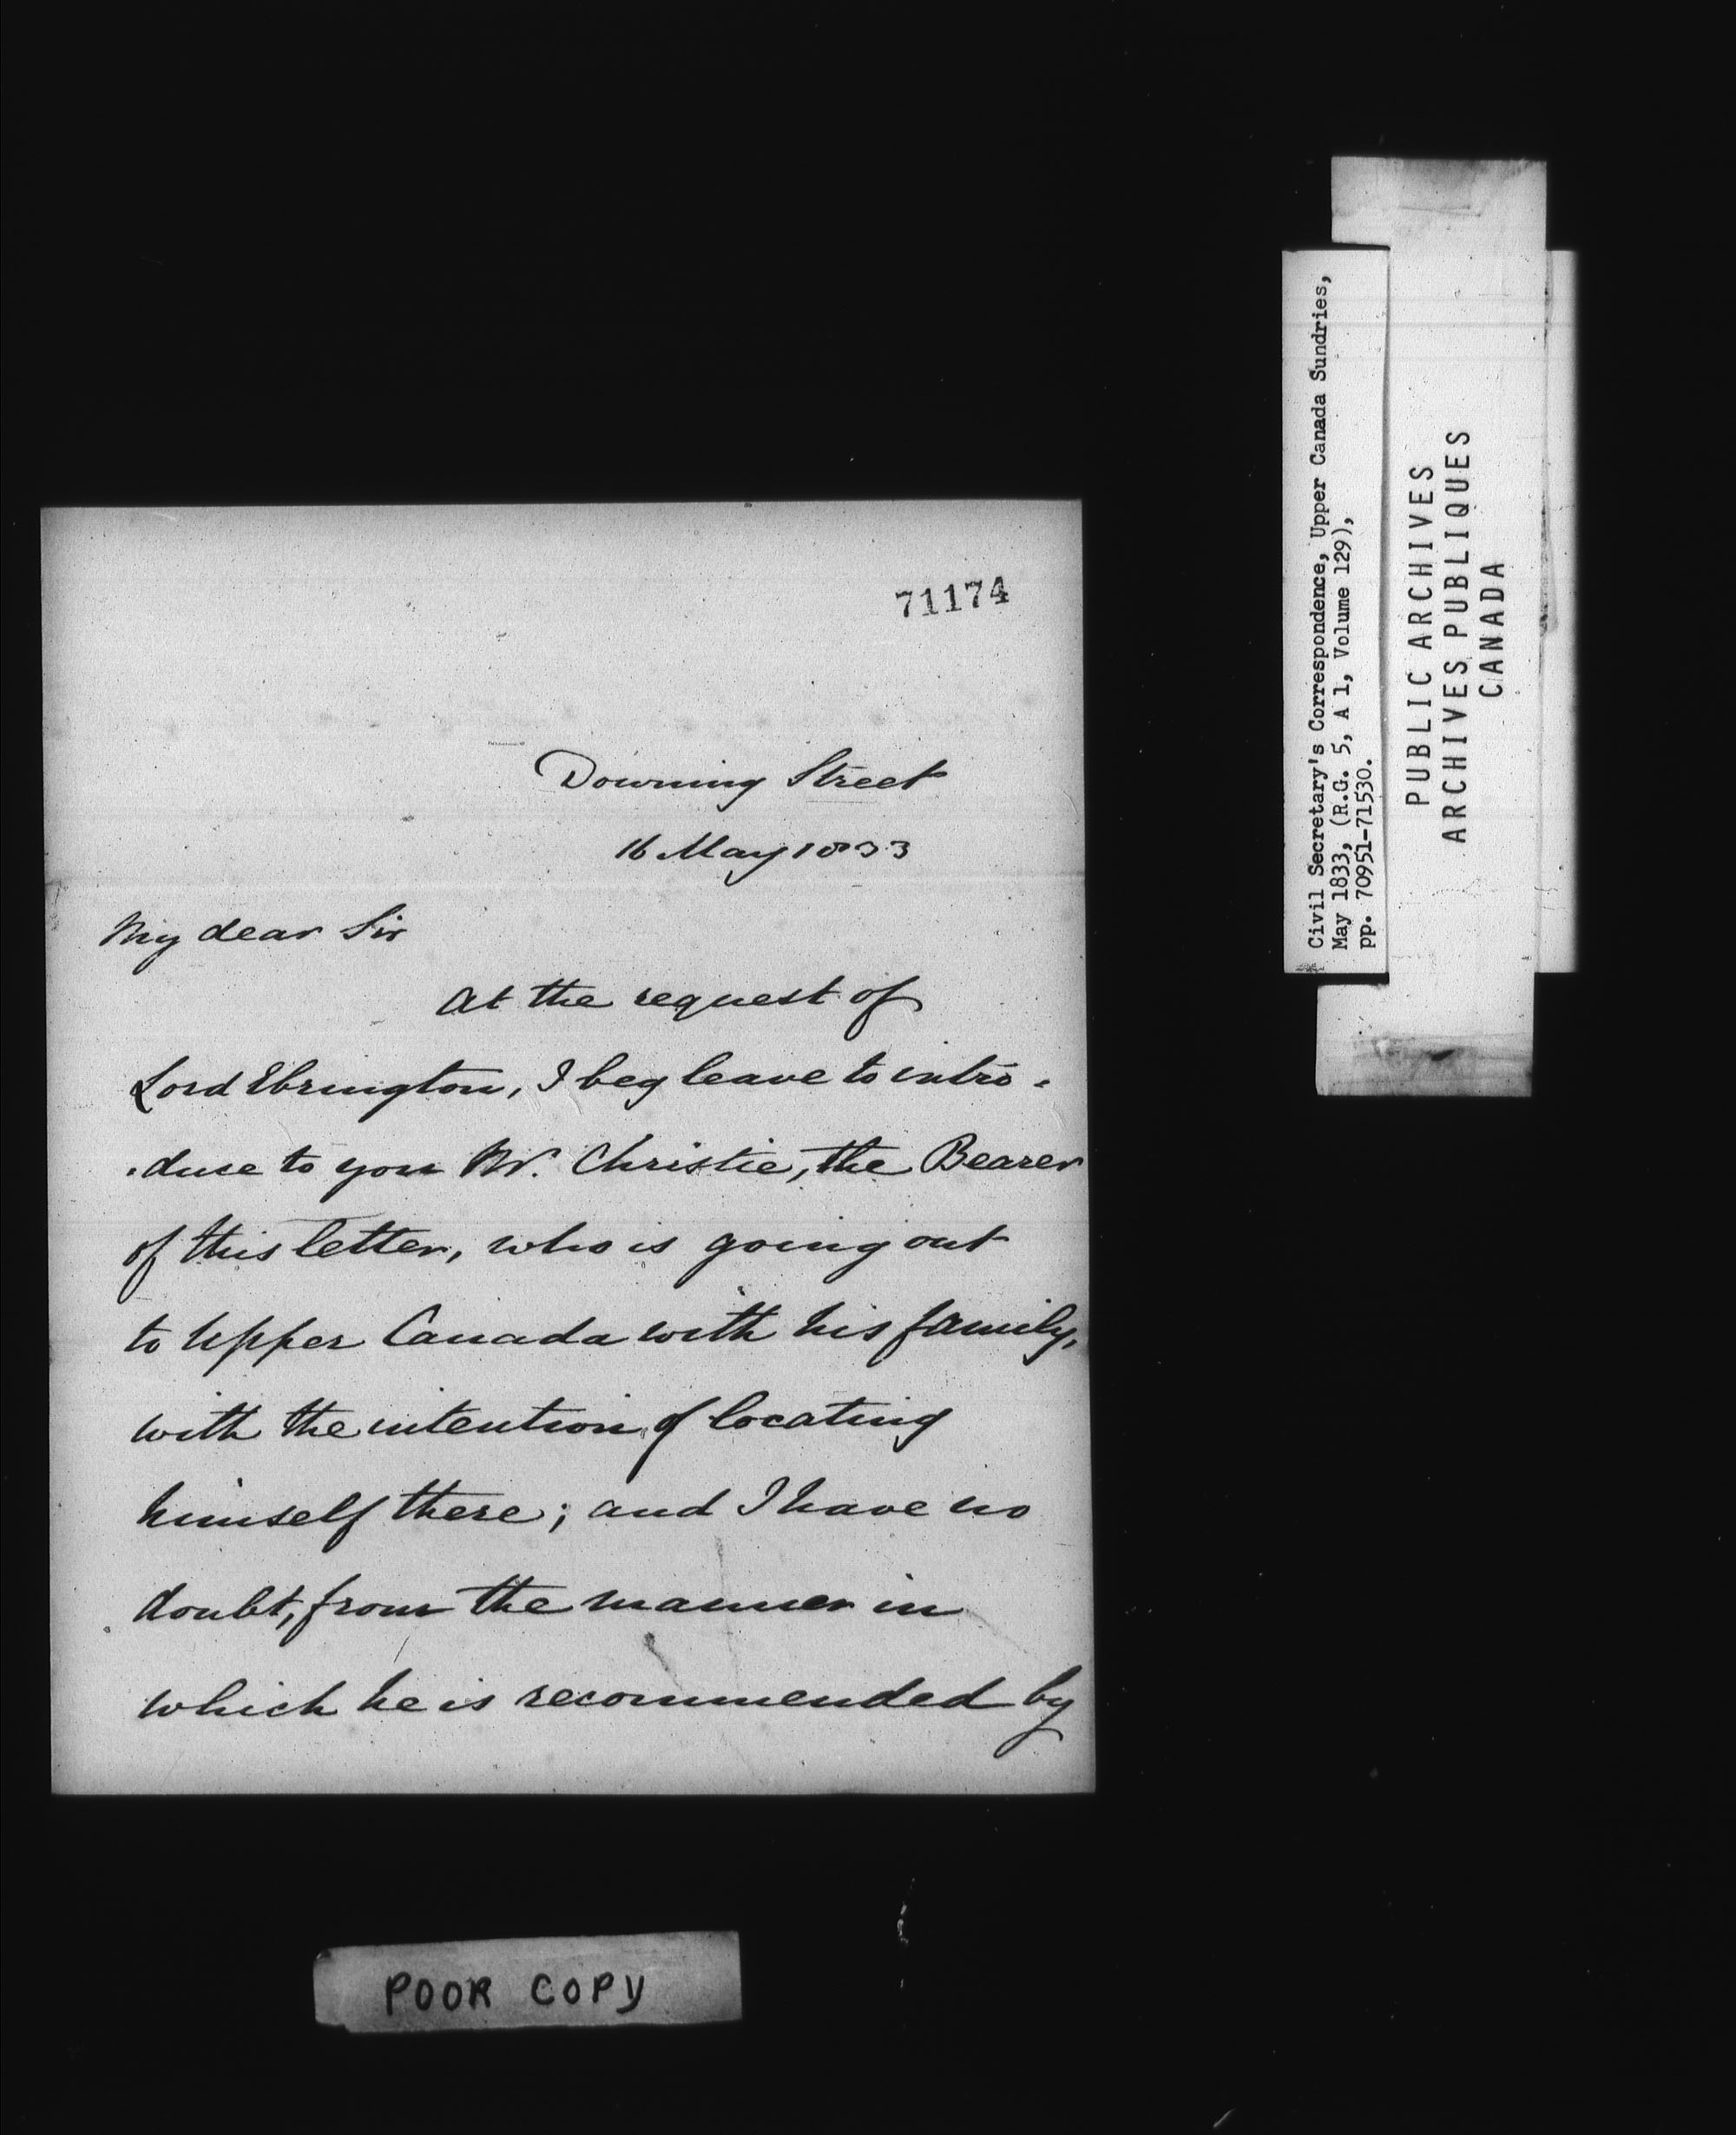 71174
Downing Street
16 May 1833
My dear Sir
At the request of
Lord Ebrington, I beg leave to intro-
-duce to you Mr. Christie, the Bearer
of this letter, who is going out
to Upper Canada with his family,
with the intention of locating
himself there; and I have no
doubt, from the manner in
which he is recommended by
Civil Secretary's Correspondence, Upper Canada Sundries,
May 1833, (R.G. 5, A 1, Volume 129),
pp. 70951-71530.
PUBLIC ARCHIVES
ARCHIVES PUBLIQUES
CANADA
POOR COPY